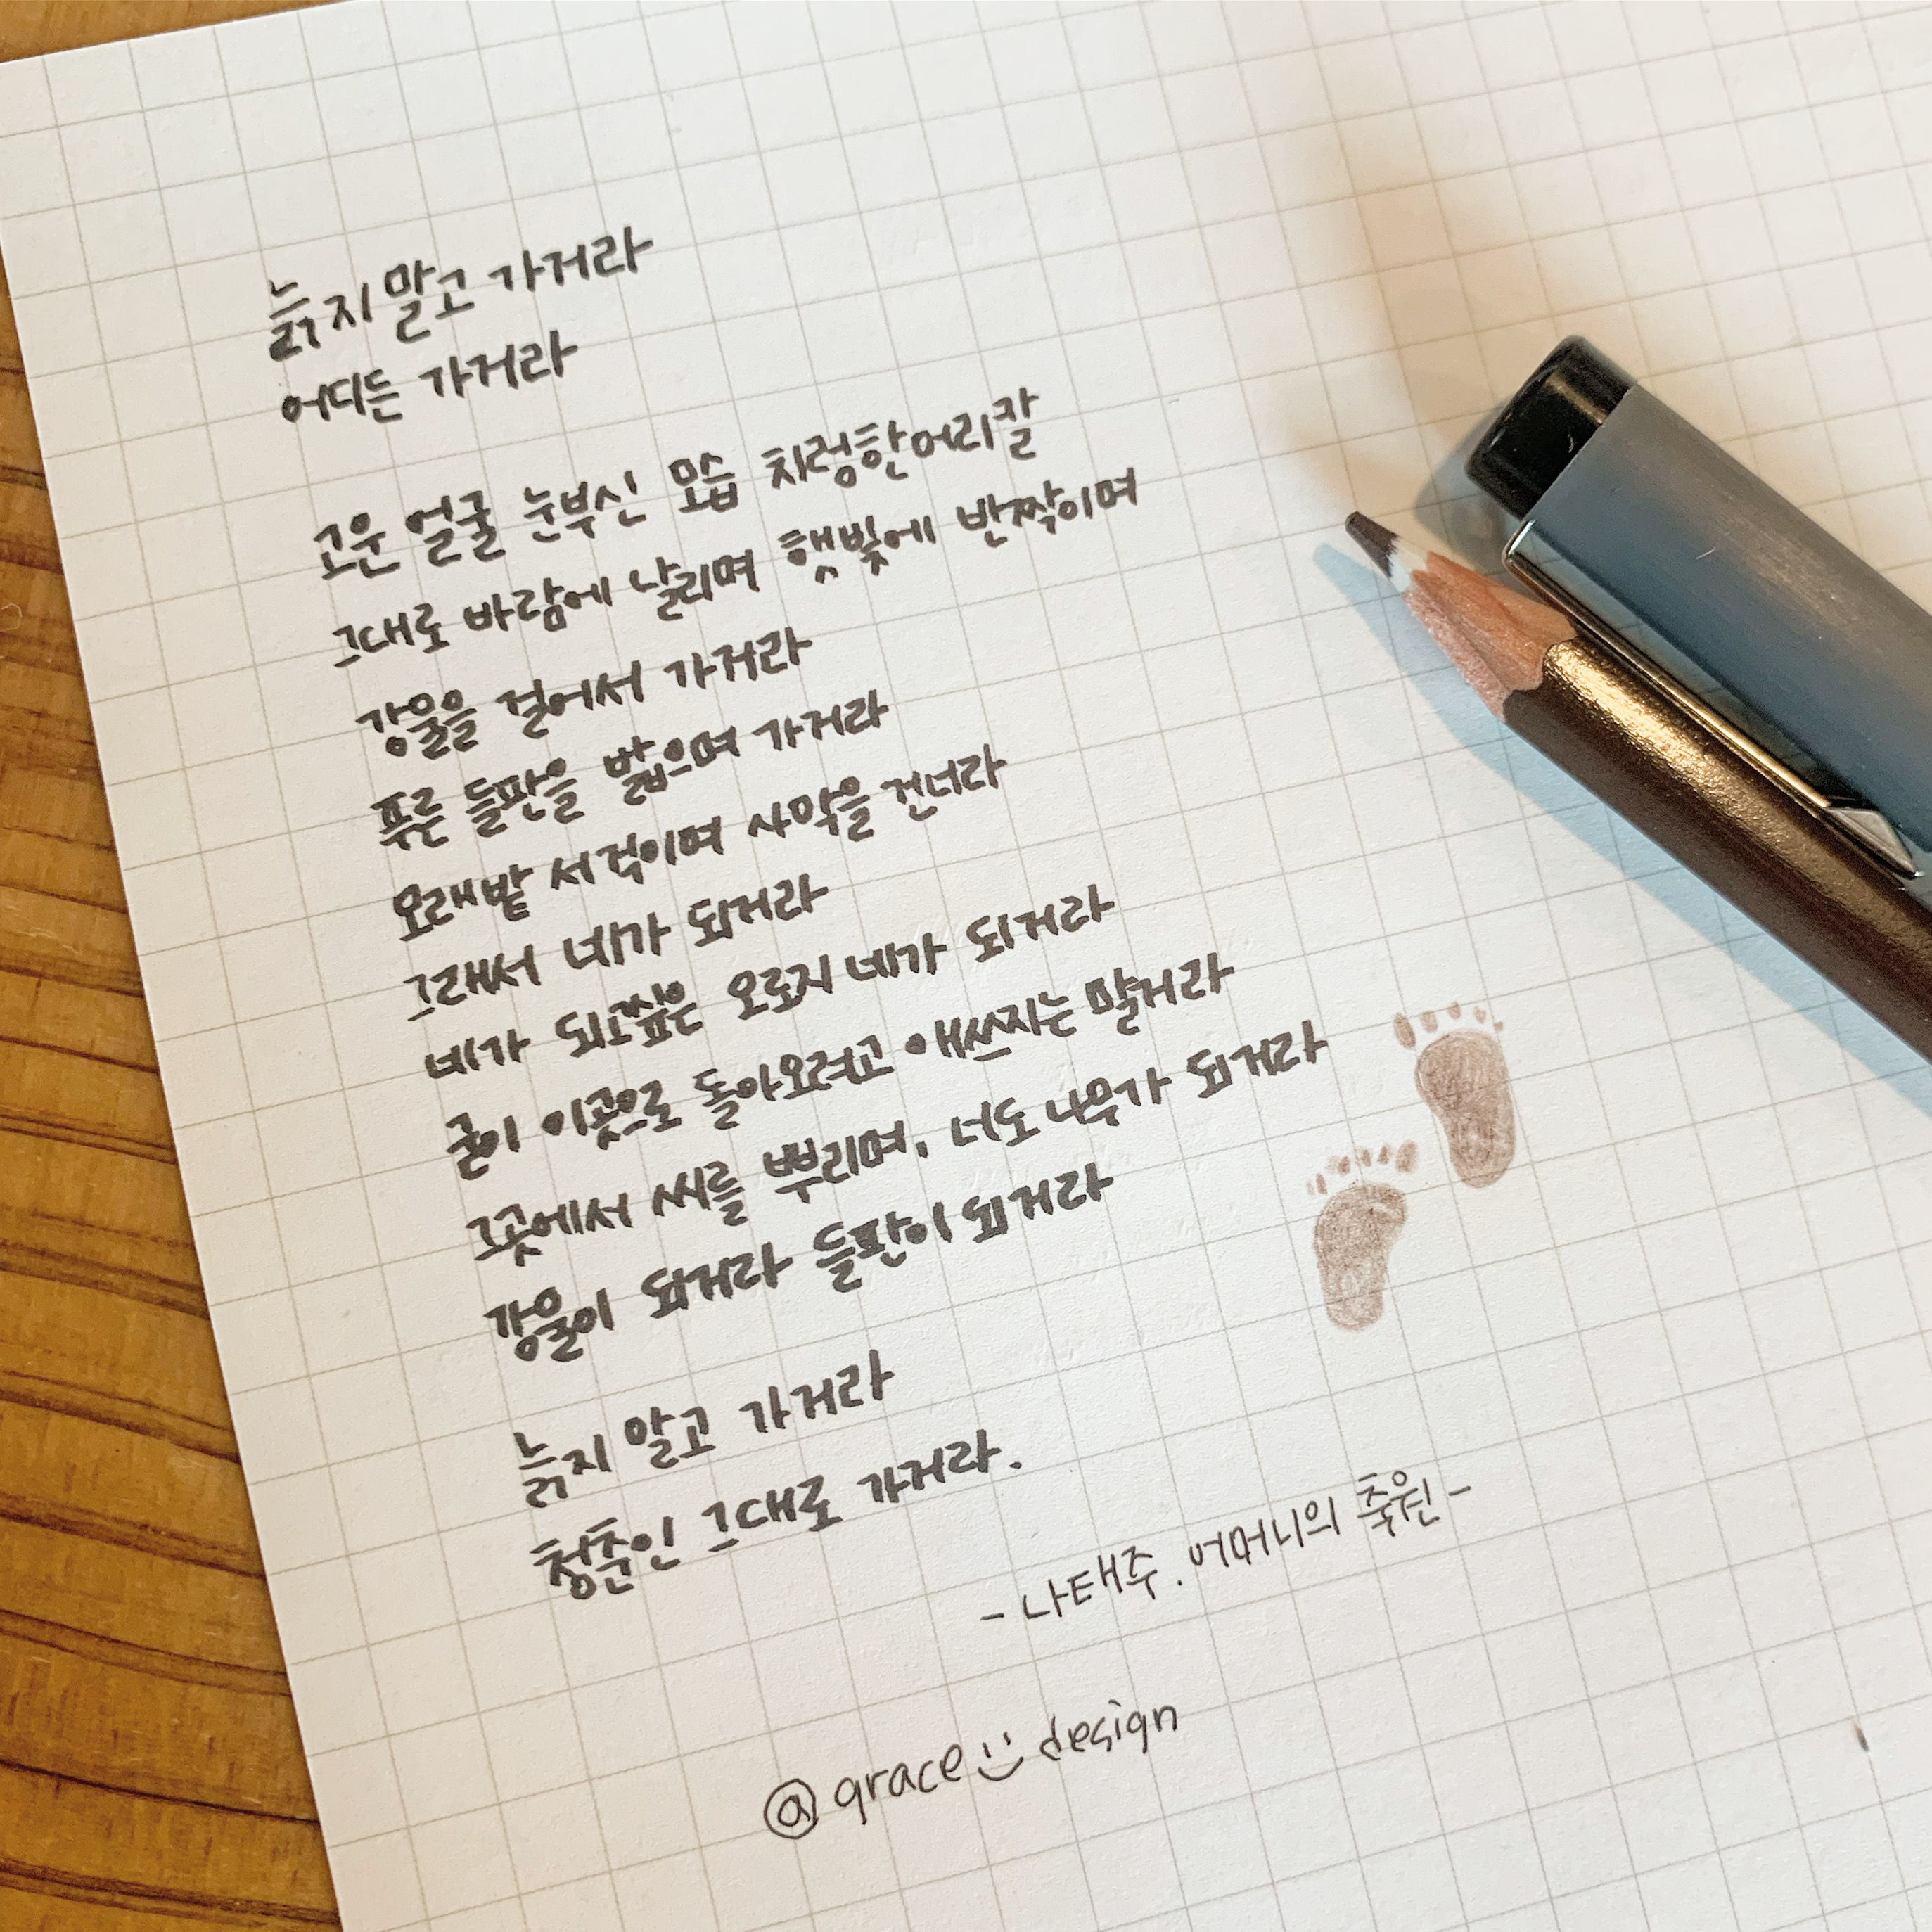 늙지 말고 가거라
어디든 가거라
고운 얼굴 눈부신 모습 치렁한 머리칼
그대로 바람에 날리며 햇빛에 반짝이며
강물을 걸어서 가거라
푸른 들판을 밟으며 가거라
모래밭 서걱이며 사막을 건너라
그래서 네가 되거라
네가 되고 싶은 오로지 네가 되거라
굳이 이곳으로 돌아오려고 애쓰지는 말거라
그곳에서 씨를 뿌리며, 너도 나무가 되거라
강물이 되거라 들판이 되거라
늙지 말고 가거라
청춘인 그대로 가거라.
- 나태주. 어머니의 축원 -
@grace design